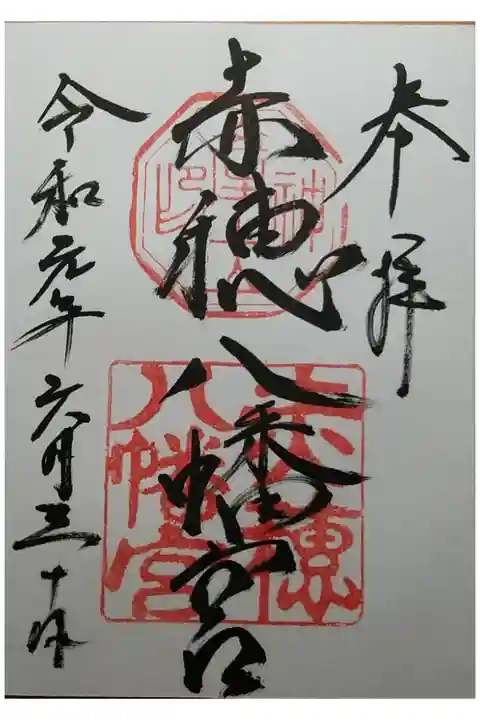 奉拝
赤穂八幡宮
赤穂
八幡宮
令和元年六月三十日